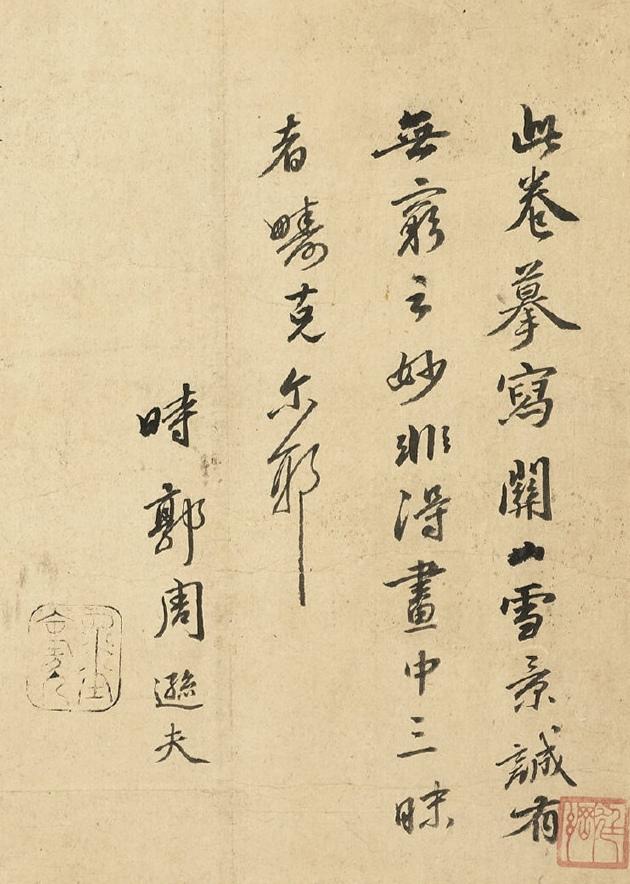 此卷摹寫關山雪景誠有
無窮之妙非得畫中三昧
者疇克尔耶
時郭周遜夫